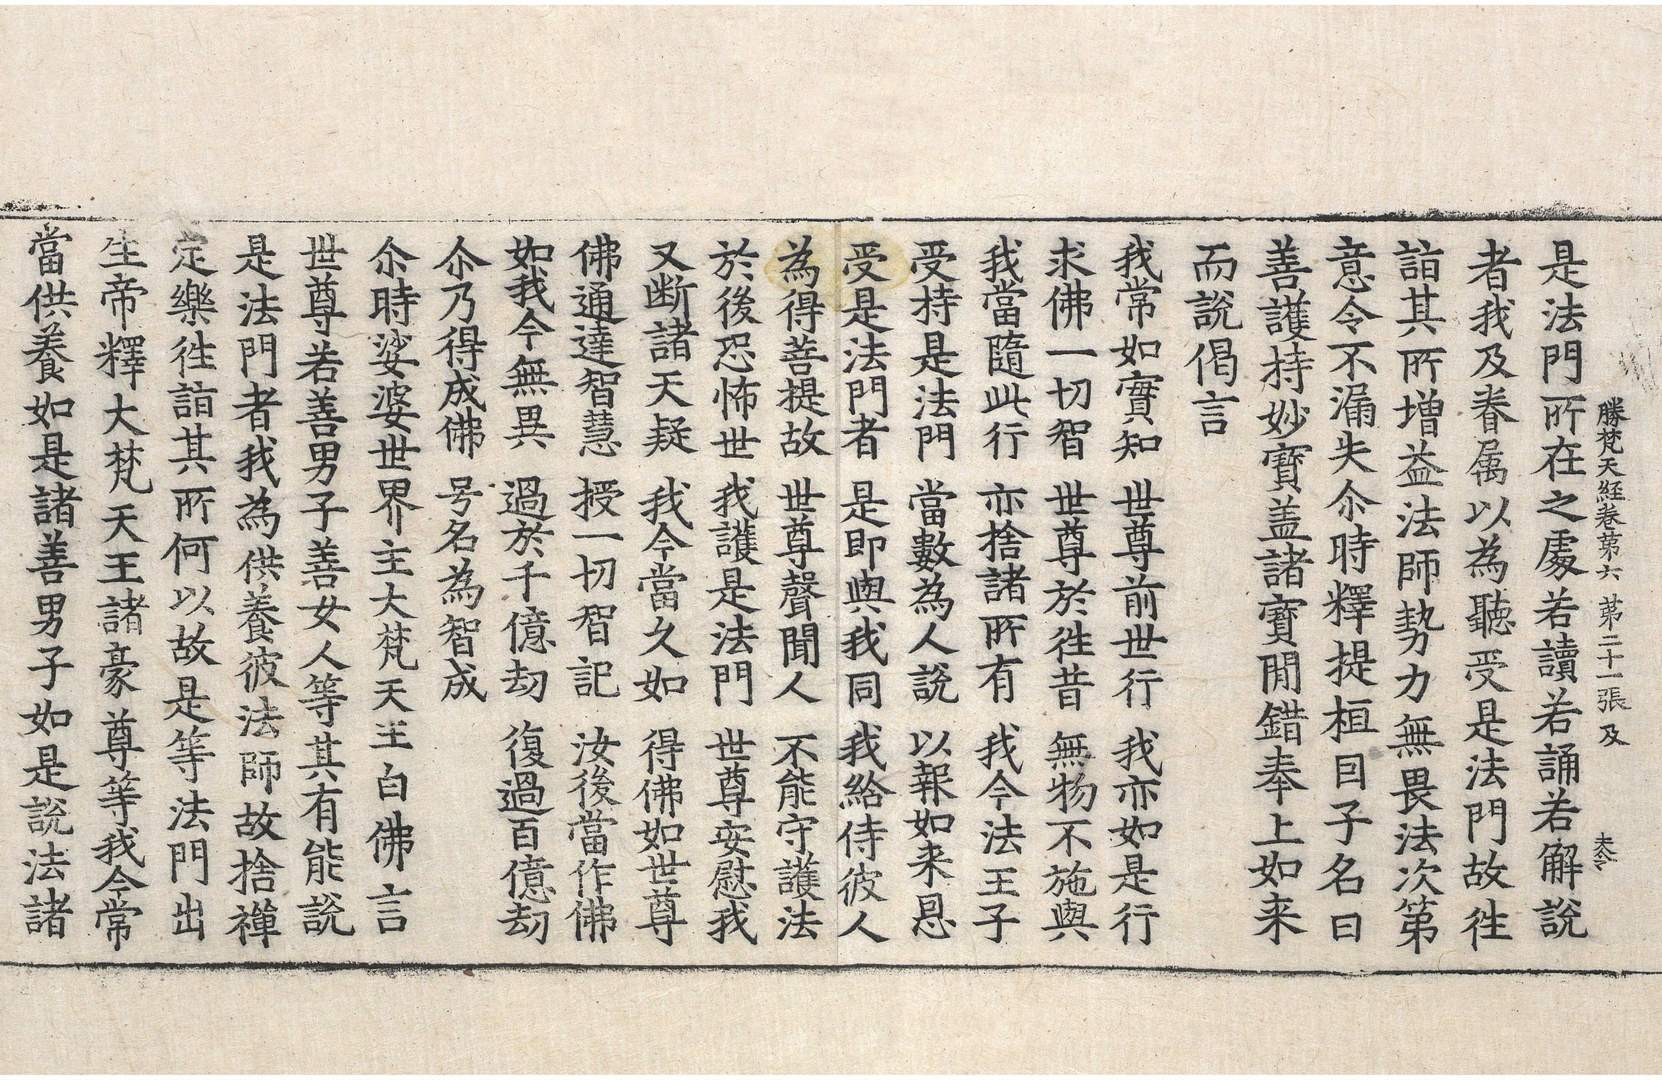 勝梵天経卷苐六 苐二十一張 及
是法門所在之處若讀若誦若解說
者我及眷属以為聽受是法門故徃
詣其所增益法師勢力無畏法次苐
意令不漏失尒時釋提桓因子名曰
善護持妙寶盖諸寶間錯奉上如来
而說偈言
我常如實知 世尊前世行 我亦如是行
求佛一切智 世尊於徃昔 無物不施與
我當隨此行 亦捨諸所有 我今法王子
受持是法門 當數為人說 以報如来恩
受是法門者 是即與我同 我給侍彼人
為得菩提故 世尊聲聞人 不能守護法
於後恐怖世 我護是法門 世尊安慰我
又断諸天疑 我今當久如 得佛如世尊
佛通達智慧 授一切智記 汝後當作佛
如我今無異 過於千億劫 復過百億劫
尒乃得成佛 号名為智成
尒時娑婆世界主大梵天王白佛言
世尊若善男子善女人等其有能說
是法門者我為供養彼法師故捨禪
定樂徃詣其所何以故是等法門出
生帝釋大梵天王諸豪尊等我今常
當供養如是諸善男子如是說法諸